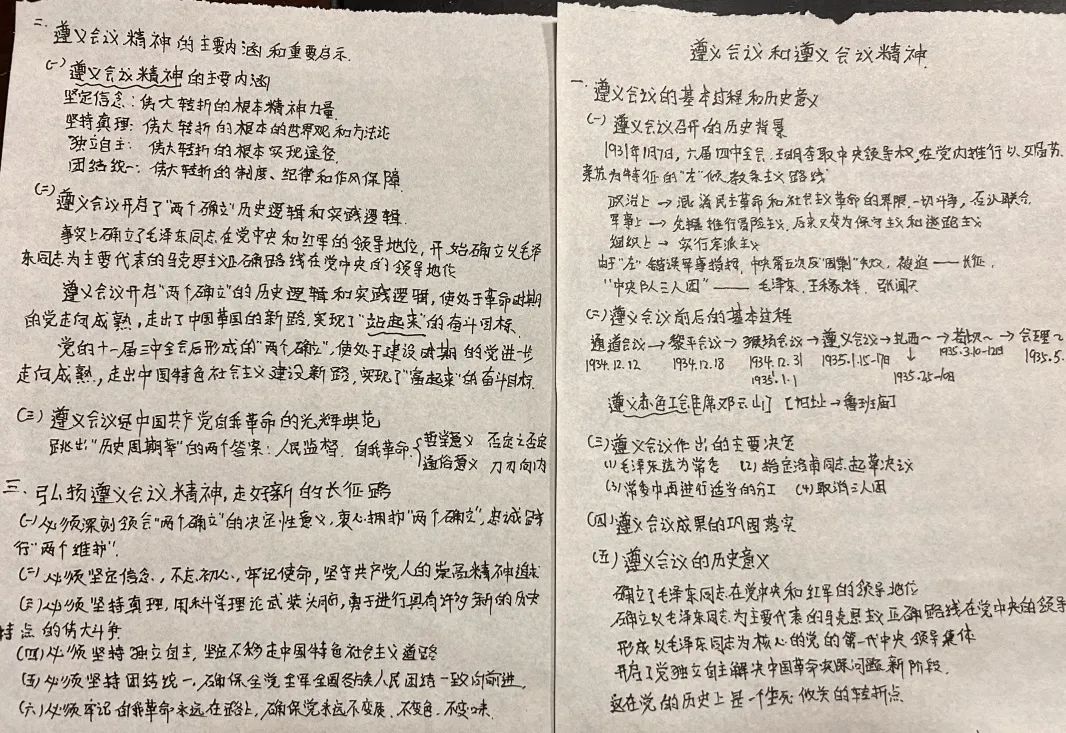 遵义会议和遵义会议精神
一. 遵义会议的基本过程和历史意义
(一) 遵义会议召开的历史背景
1931年1月7日, 六届四中全会. 王明夺取中央领导权, 在党内推行以
为特征的"左"倾教条主义路线
政治上 → 混淆民主革命和社会主义革命的界限. 一切斗争, 否认联合
军事上 → 先推行冒险主义, 后来又变为保守主义和逃跑主义
组织上 → 实行宗派主义
由于"左"错误军事指挥, 中央第五次反"围剿"失败, 被迫——长征,
"中央队三人团"—— 毛泽东. 王稼祥. 张闻天
(二) 遵义会议前后的基本过程
通道会议 → 黎平会议 → 猴场会议 → 遵义会议 → 扎西~ → 苟坝~ → 会理~
1934.12.12 1934.12.18 1934.12.31 1935.1.15-17日 ↓ 1935.3.10-12日 1935.5.
1935.1.1 1935.2.5-10日
遵义赤色工会主席邓云山] [旧址 → 鲁班庙]
(三) 遵义会议作出的主要决定
(1) 毛泽东选为常委 (2) 指定洛甫同志起草决议
(3) 常委中再进行适当的分工 (4) 取消三人团
(四) 遵义会议成果的巩固落实
(五) 遵义会议的历史意义
确立了毛泽东同志在党中央和红军的领导地位
确立以毛泽东同志为主要代表的马克思主义正确路线在党中央的领导
形成以毛泽东同志为核心的党的第一代中央领导集体
开启了党独立自主解决中国革命实际问题新阶段.
这在党的历史上是一个生死攸关的转折点
二. 遵义会议精神的主要内涵和重要启示.
(一) 遵义会议精神的主要内涵
坚定信念: 伟大转折的根本精神力量
坚持真理: 伟大转折的根本的世界观和方法论
独立自主: 伟大转折的根本实现途径
团结统一: 伟大转折的制度、纪律和作风保障
(二) 遵义会议开启了"两个确立"历史逻辑和实践逻辑.
事实上确立了毛泽东同志在党中央和红军的领导地位, 开始确立以毛泽
东同志为主要代表的马克思主义正确路线在党中央的领导地位
遵义会议开启"两个确立"的历史逻辑和实践逻辑, 使处于革命时期
的党走向成熟, 走出了中国革国的新路. 实现了"站起来"的奋斗目标.
党的十一届三中全会后形成的"两个确立", 使处于建设时期的党进一步
走向成熟, 走出中国特色社会主义建设新路, 实现了"富起来"的奋斗目标.
(三) 遵义会议是中国共产党自我革命的光辉典范
跳出"历史周期率"的两个答案: 人民监督. 自我革命 { 哲学意义 否定之否定
通俗意义 刀刃向内
三. 弘扬遵义会议精神, 走好新的长征路
(一) 必须深刻领会"两个确立"的决定性意义, 衷心拥护"两个确立", 忠诚践
行"两个维护".
(二) 必须坚定信念, 不忘初心, 牢记使命, 坚守共产党人的崇高精神追求
(三) 必须坚持真理, 用科学理论武装头脑, 勇于进行具有许多新的历史
特点的伟大斗争
(四) 必须坚持独立自主, 坚定不移走中国特色社会主义道路
(五) 必须坚持团结统一, 确保全党全军全国各族人民团结一致向前进.
(六) 必须牢记自我革命永远在路上, 确保党永远不变质. 不变色. 不变味.